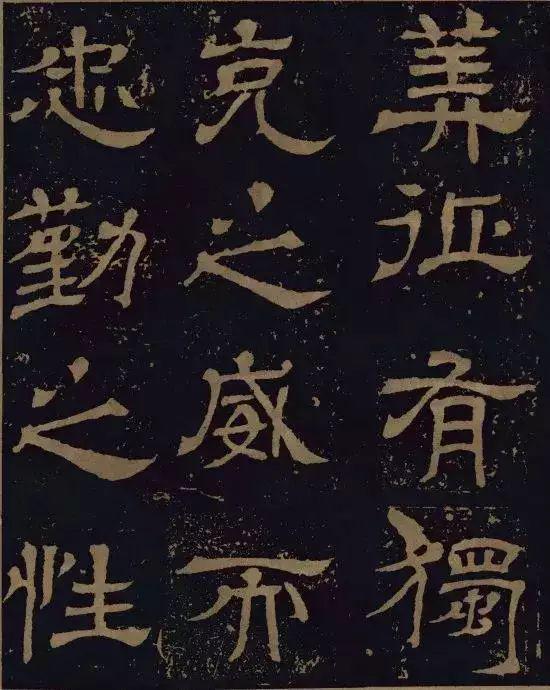 征有獨
克之威而
忠勤之性